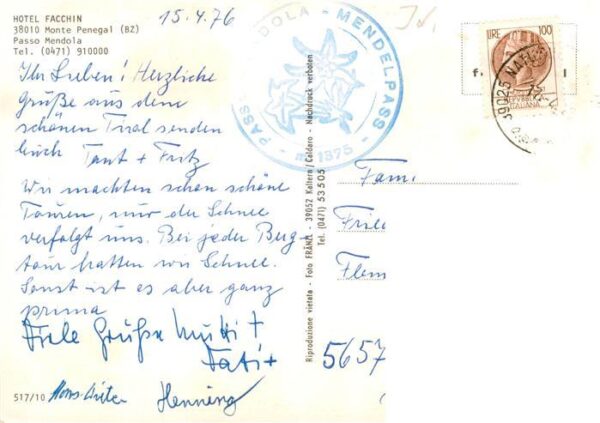 HOTEL FACCHIN
38010 Monte Penegal (BZ)
Passo Mendola
Tel. (0471) 910000
15.4.76
Ihr Lieben! Herzliche
Grüße aus dem
schönen Tirol senden
Euch Tant + Fritz
Wir machten schon schöne
Touren, nur der Schnee
verfolgt uns. Bei jeder Berg-
tour hatten wir Schnee.
Sonst ist es aber ganz
prima
Viele Grüße Mutti +
Vati +
Hans-Dieter
Henning
517/10
PASSO MENDOLA - MENDELPASS - m. 1375
Riproduzione vietata - Foto FRÄNZL - 39052 Kaltern/Caldaro - Nachdruck verboten
Tel. (0471) 53505
LIRE 100
ITALIANA
39025
Fam.
Frie
Flem
5657